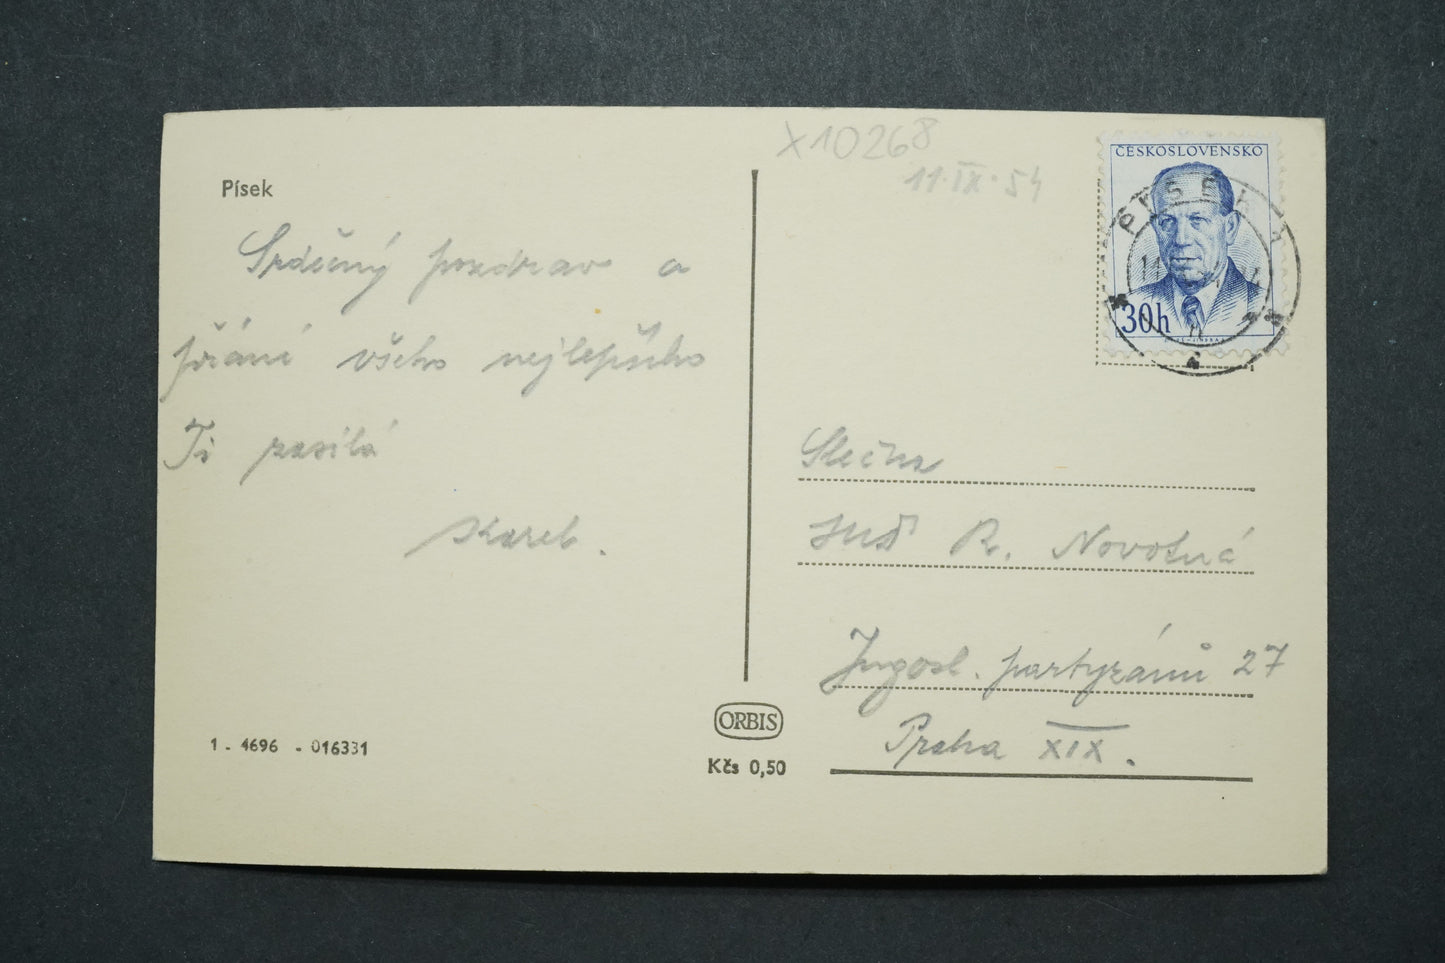 Písek
Srdečný pozdrav a
přání všeho nejlepšího
Ti zasílá
Karel.
1 - 4696 - 016331
ORBIS
Kčs 0,50
X10268
11.IX.54
ČESKOSLOVENSKO
30h
PÍSEK 1
Slečna
R. Novotná
Jugosl. partyzánů 27
Praha XIX.